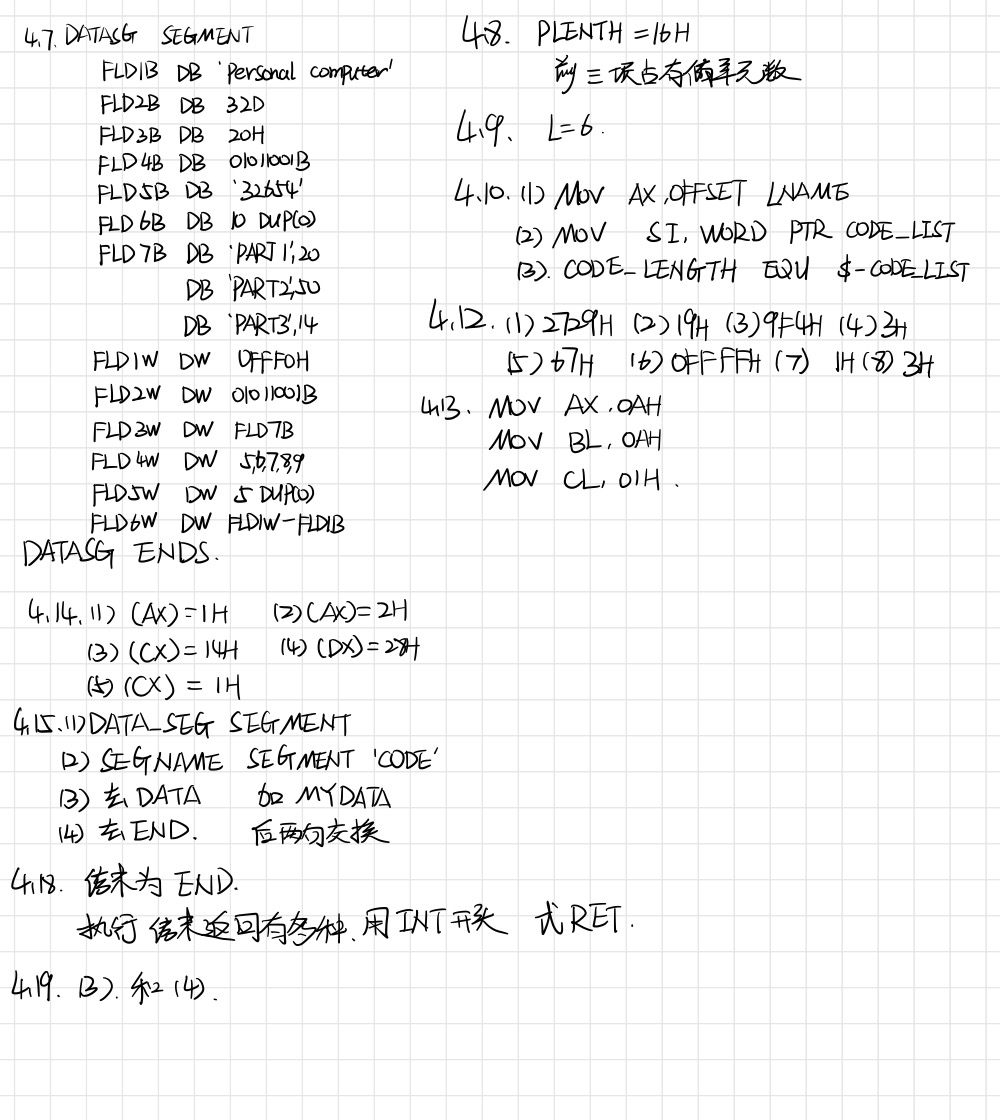 4.7. DATASG SEGMENT
FLD1B DB 'Personal computer'
FLD2B DB 32D
FLD3B DB 20H
FLD4B DB 01011001B
FLD5B DB '32654'
FLD6B DB 10 DUP(0)
FLD7B DB 'PART1',20
DB 'PART2',50
DB 'PART3',14
FLD1W DW 0FFF0H
FLD2W DW 01011001B
FLD3W DW FLD7B
FLD4W DW 5,6,7,8,9
FLD5W DW 5 DUP(0)
FLD6W DW FLD1W-FLD1B
DATASG ENDS.
4.8. PLENTH=16H
前三项占存储单元数
4.9. L=6.
4.10. (1) MOV AX,OFFSET LNAME
(2) MOV SI, WORD PTR CODE_LIST
(3). CODE_LENGTH EQU $-CODE_LIST
4.12. (1) 2729H (2) 19H (3) 9F4H (4) 3H
(5) 67H (6) 0FFFFH (7) 1H (8) 3H
4.13. MOV AX,0AH
MOV BL,0AH
MOV CL,01H.
4.14. (1) (AX)=1H (2) (AX)=2H
(3) (CX)=14H (4) (DX)=28H
(5) (CX)=1H
4.15. (1) DATA_SEG SEGMENT
(2) SEGNAME SEGMENT 'CODE'
(3) 去DATA 加 MYDATA
(4) 去END. 后两句交换
4.18. 结束为 END.
执行结束返回有多种,用INT开头 或RET.
4.19. (3). 和 (4).